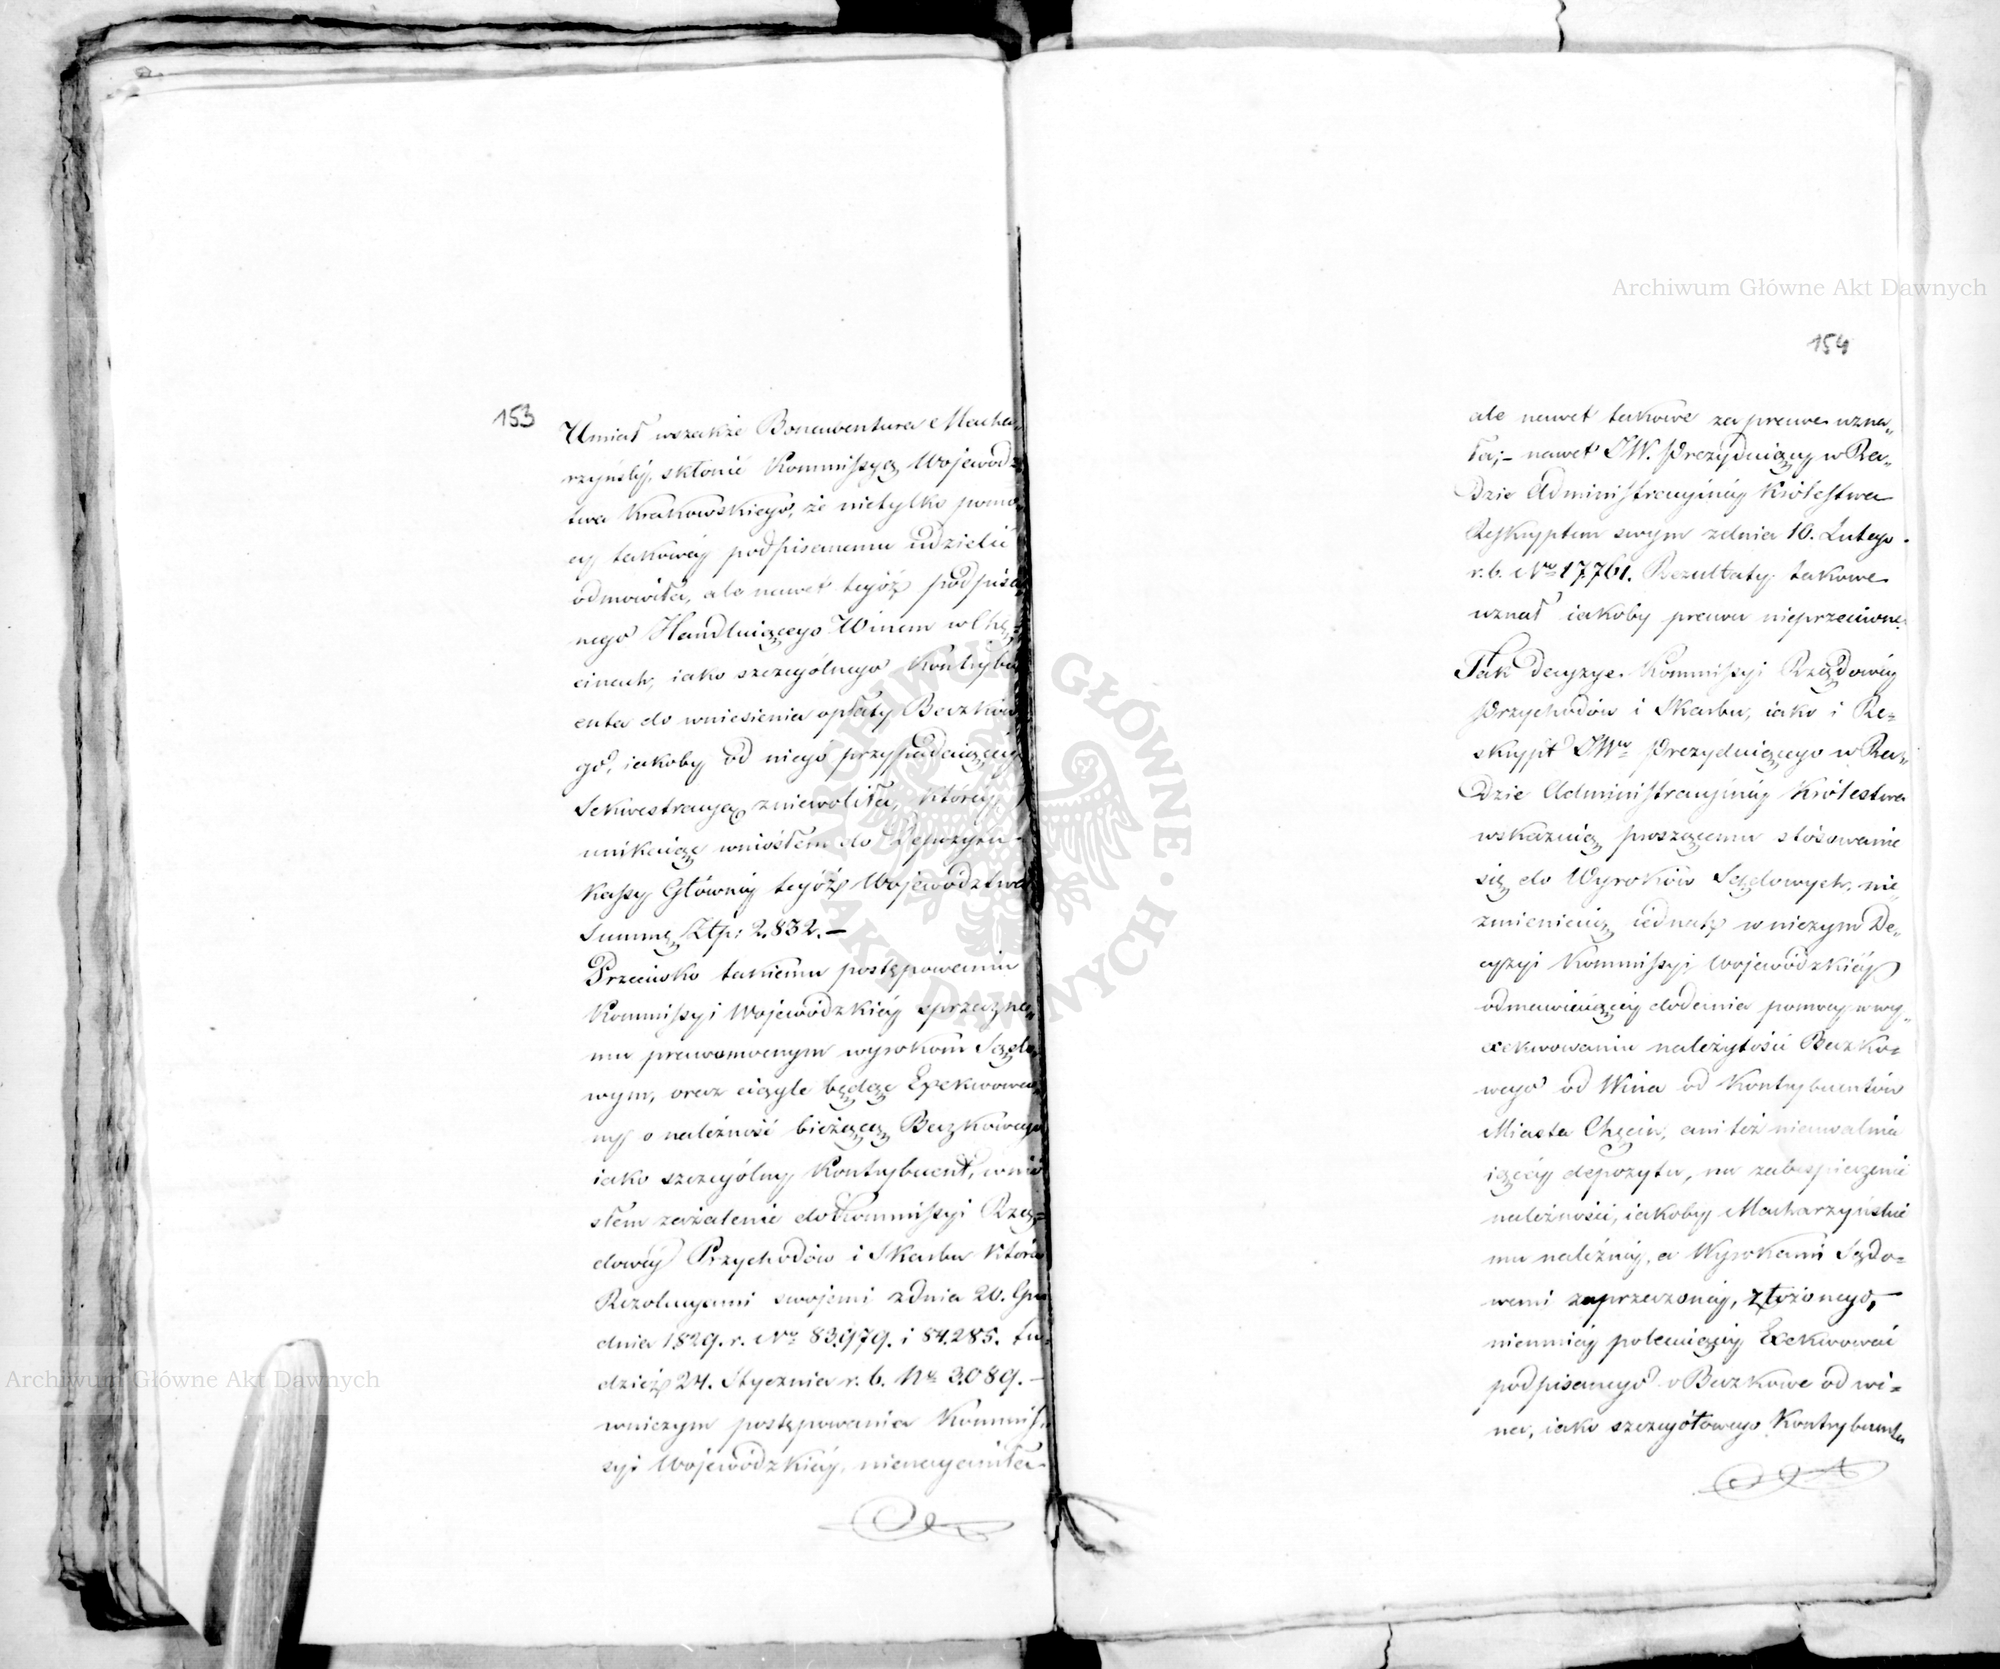 153
Umiał wszakże Bonawentura Macha„
rzyński, skłonić Kommissyą Wojewódz„
twa Krakowskiego, że nietylko pomo„
cy takowéy podpisanemu udzielić
odmówiła, ale nawet tegóż podpisa„
nego Handluiącego Winem w Chę„
cinach, iako szczególnego Kontrybu
enta do wniesienia opłaty Beczkowe
go, iakoby od niego przypadaiącéy
Sekwestracyą zniewoliła, któréy
unikaiąc wniosłem do Depozytu
Kassy Głównéy tegóż Województwa
Summę Złtp: 2.832.—
Przeciwko takiemu postępowaniu
Kommissyi Wojewódzkiéy sprzeczne„
mu prawomocnym wyrokom Sądo„
wym, oraz ciągle będąc Exekwowa„
ny o należność bieżącą Beczkowego
iako szczególny Kontrybuent, wnio
słem zażalenie do Kommissyi Rzą=
dowéy Przychodów i Skarbu która
Rezolucyami swojemi z dnia 20. Gru
dnia 1829. r. No 83.979. i 84.285. tu„
dzież 24. Stycznia r. b. No 3.089. —
w niczym postępowania Kommis„
syi Wojewódzkiéy, nienaganiła
Archiwum Główne Akt Dawnych
ARCHIWUM GŁÓWNE AKT DAWNYCH
Archiwum Główne Akt Dawnych
154
ale nawet takowe za prawe uzna„
ła;— nawet JW. Prezyduiący w Ra„
dzie Administracyinéy Królestwa
Reskryptem swym z dnia 10. Lutego
r. b. No 17.761. Rezultaty takowe
uznał iakoby prawu nieprzeciwne.
Tak decyzye Kommissyi Rządowéy
Przychodów i Skarbu, iako i Re=
skrypt JWo Prezyduiącego w Ra„
dzie Administracyinéy Królestwa
wskazuią proszącemu stosowanie
się do Wyroków Sądowych, nie
zmieniaią iednak w niczym De„
cyzyi Kommissyi Wojewódzkiéy
odmawiaiącéy dodania pomocy w wy„
exekwowaniu należytości Beczko=
wego od Wina od Kontrybuentów
Miasta Chęcin, ani też nieuwalnia
iącéy depozytu, na zabespieczenie
należności, iakoby Macharzyńskie
mu należnéy, a Wyrokami Sądo=
wemi zaprzeczonéy, złożonego,
niemniéy polecaiącéy Exekwować
podpisanego o Beczkowe od wi=
na, iako szczegółowego Kontrybuenta